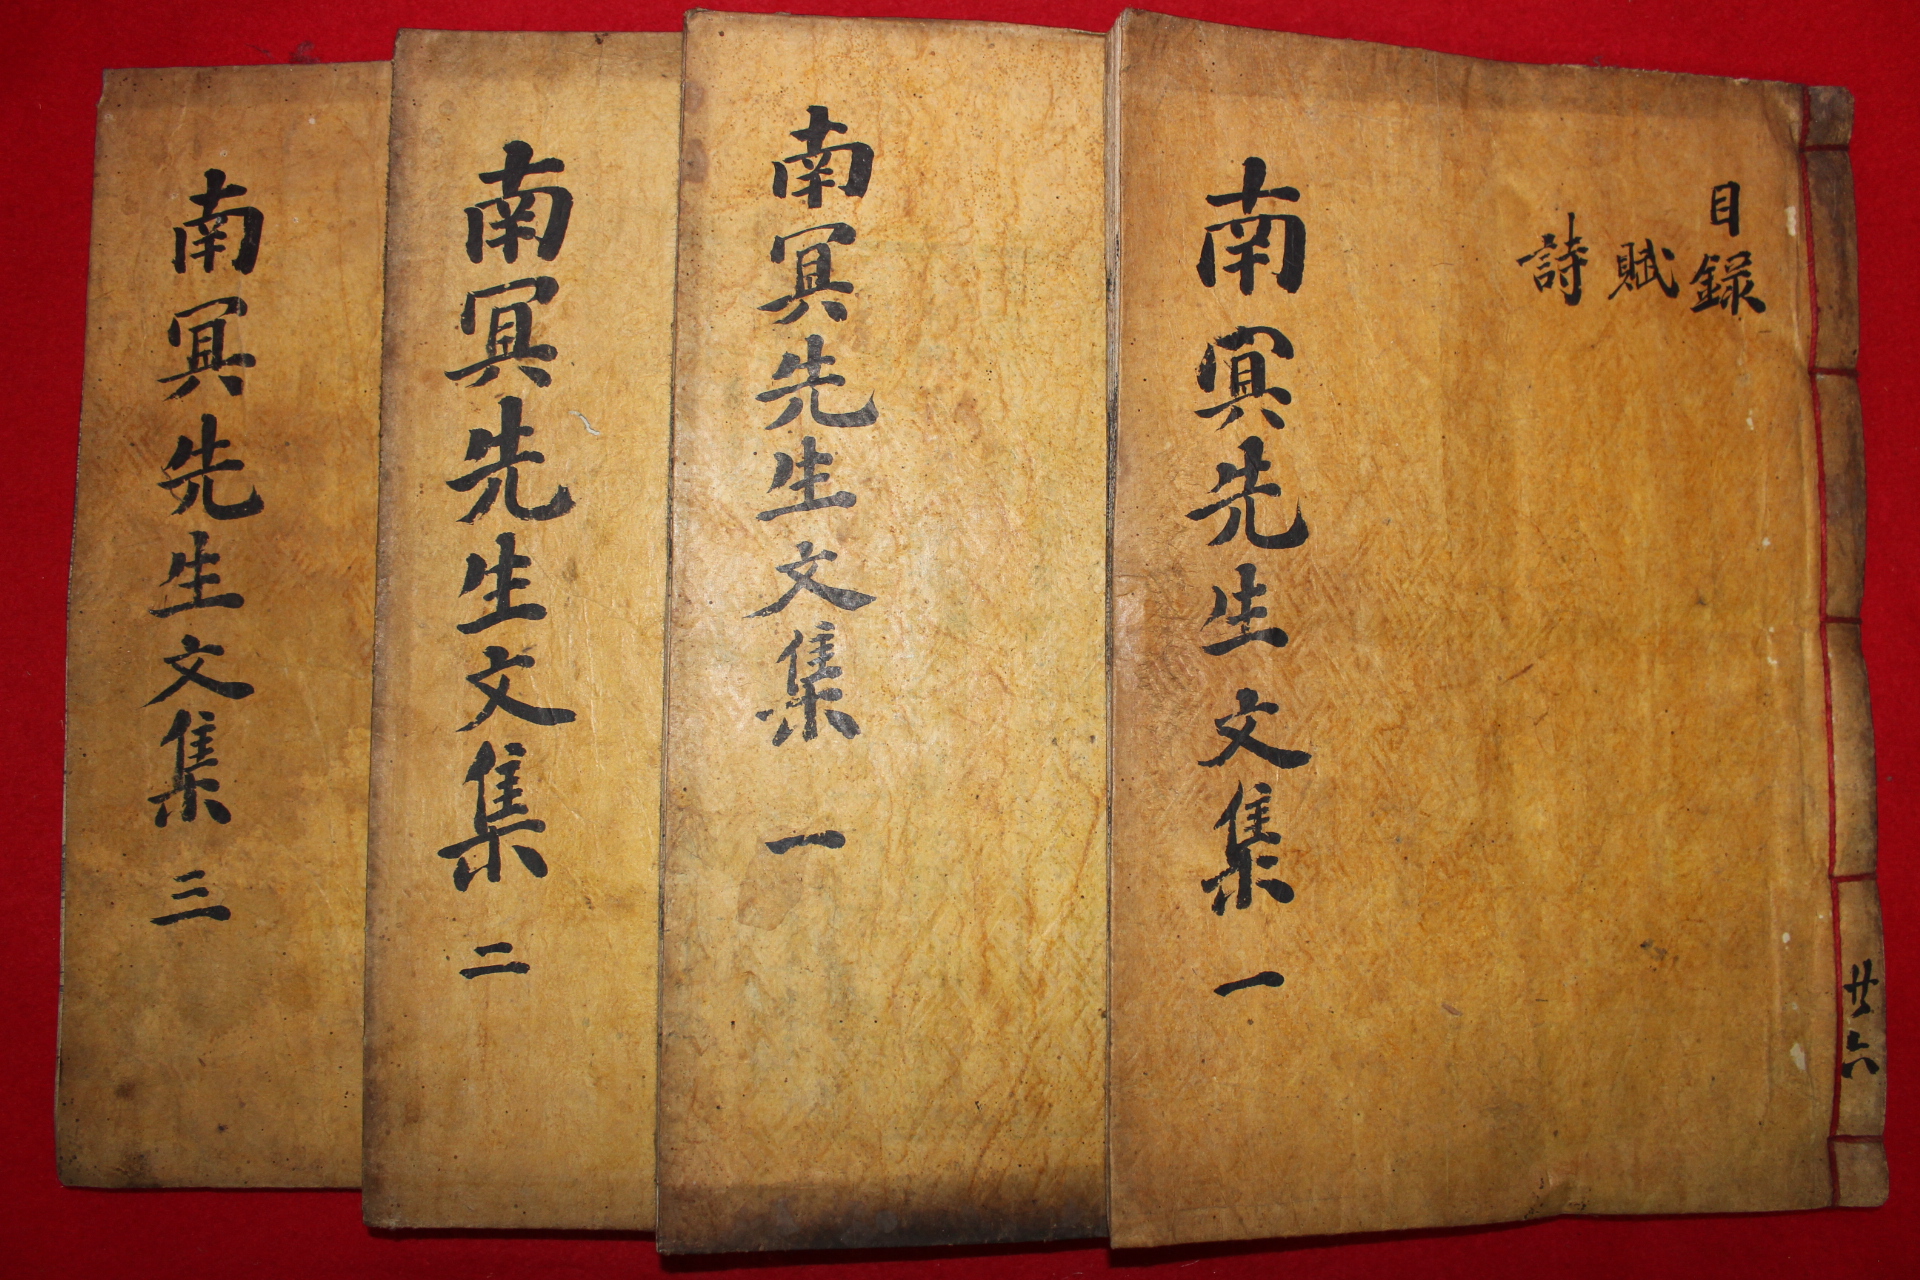 目錄
賦
詩
南冥先生文集 一
廿六
南冥先生文集 一
南冥先生文集 二
南冥先生文集 三